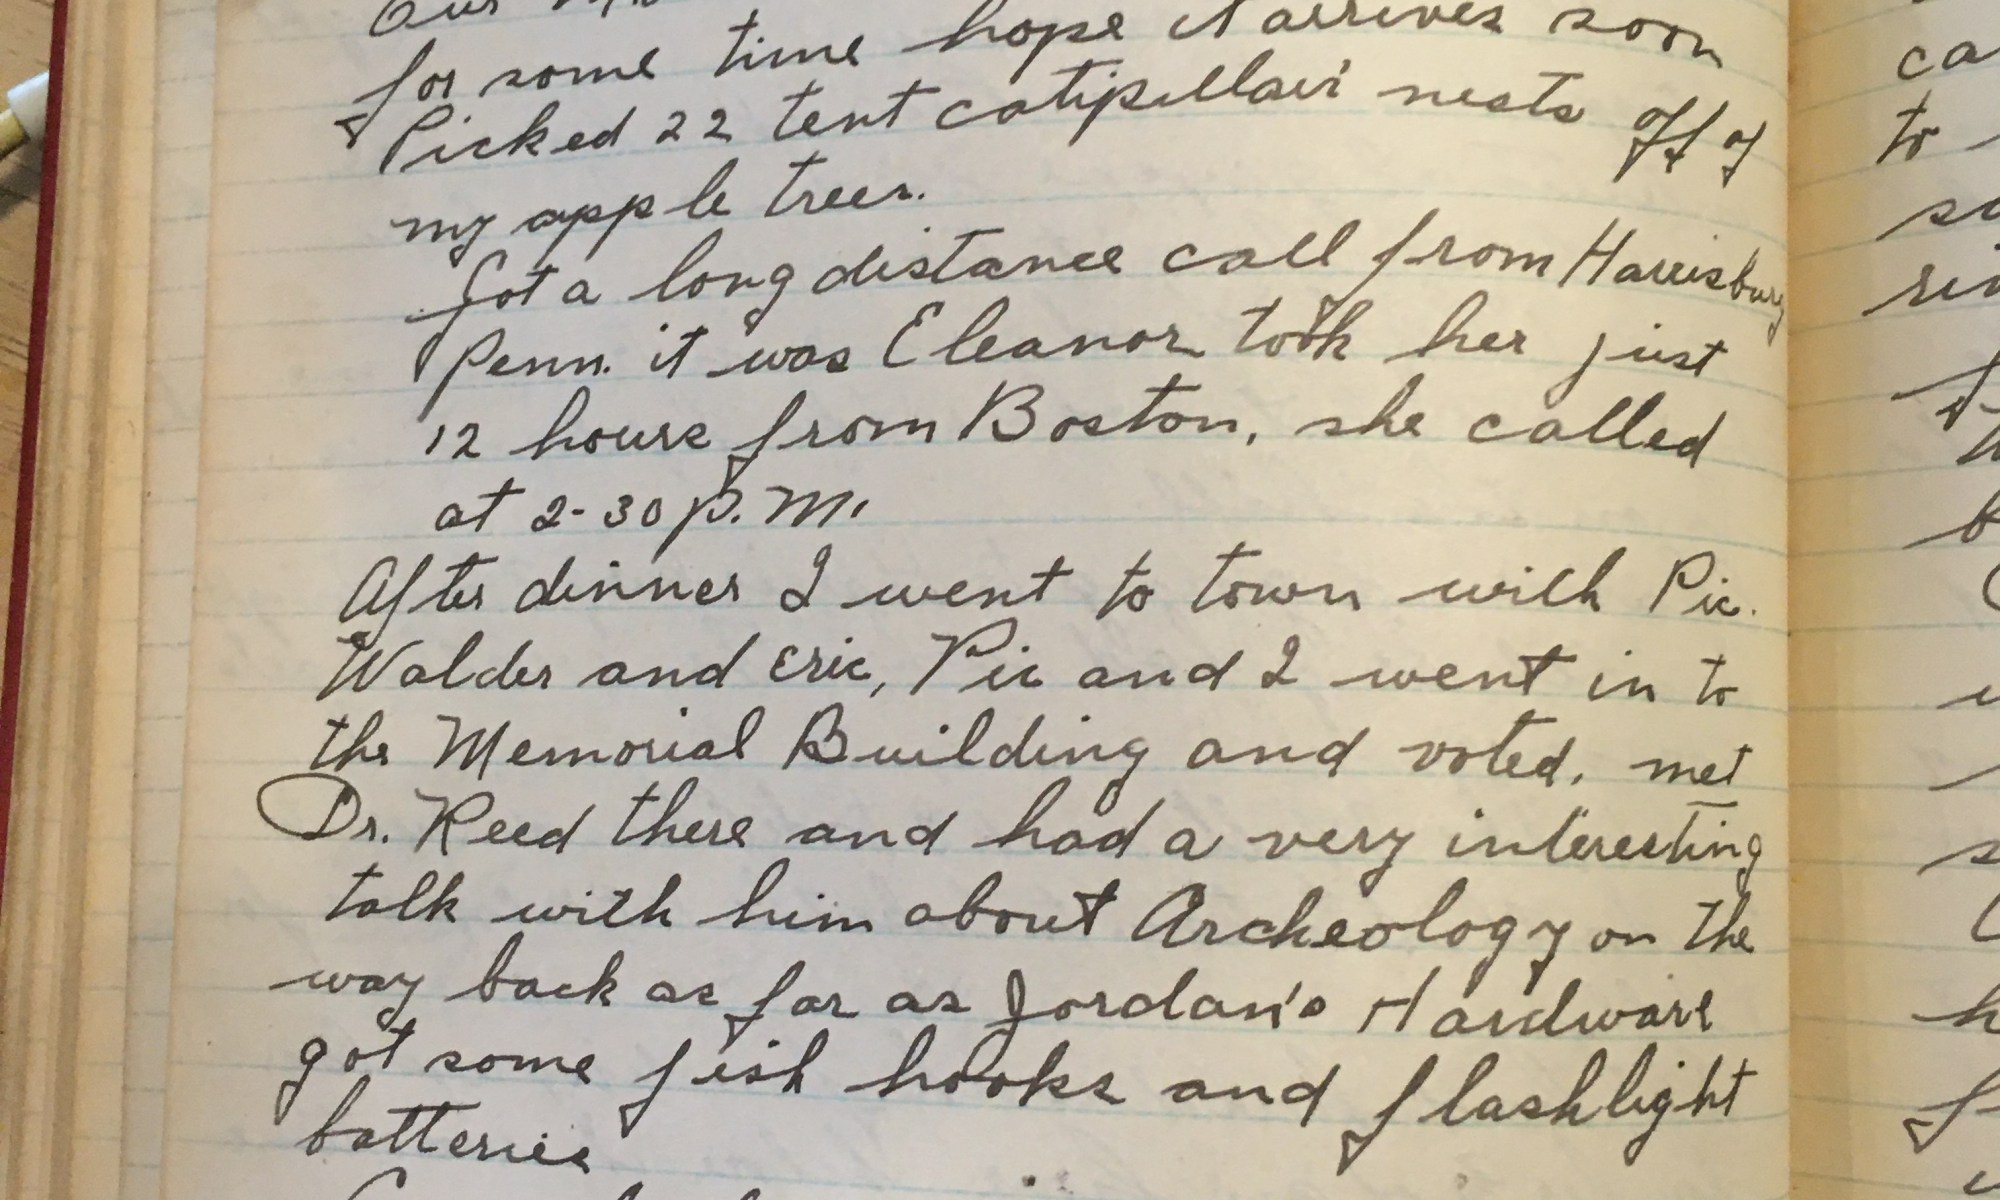 Our
for some time hope it arrives soon
Picked 22 tent catipillair nests off of
my apple trees.
Got a long distance call from Harrisburg
Penn. it was Eleanor took her just
12 hours from Boston, she called
at 2-30 p.m.
After dinner I went to town with Pic.
Walder and Eric, Pic and I went in to
the Memorial Building and voted, met
Dr. Reed there and had a very interesting
talk with him about Archeology on the
way back as far as Jordan's Hardware
got some fish hooks and flashlight
batteries
ca
to